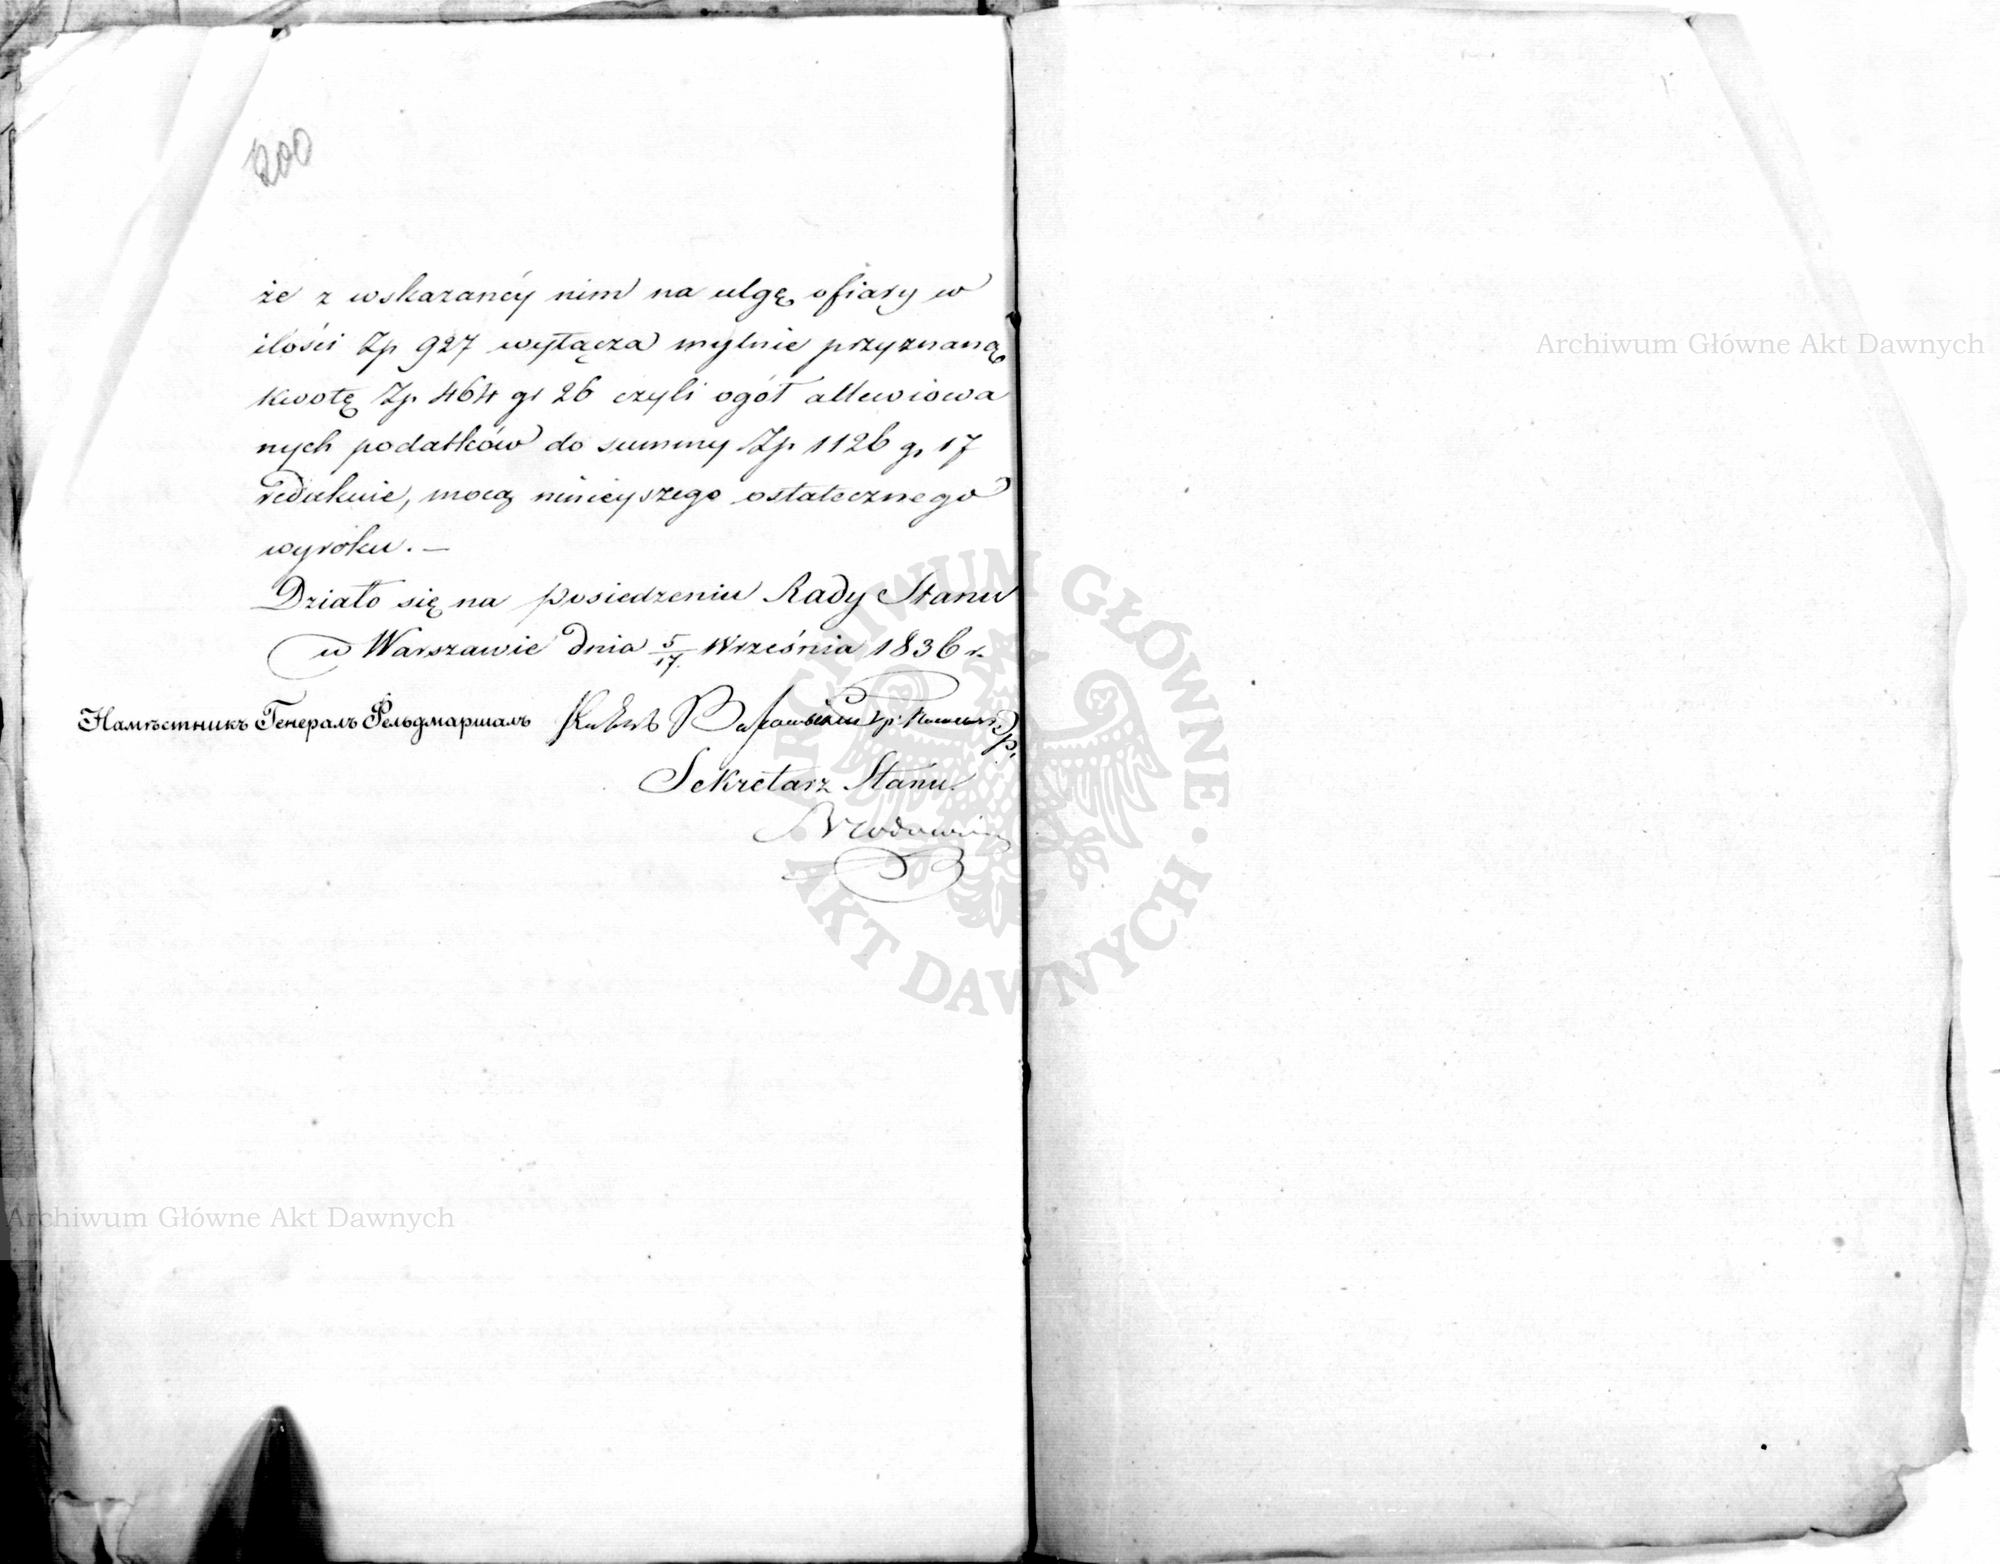 200
że z wskazanéy nim na ulgę ofiary w
ilości Zp 927 wyłącza mylnie przyznaną
kwotę Zp. 464 gr 26 czyli ogół allewiowa
nych podatków do summy Zp. 1126 g. 17
redukuie, mocą ninieyszego ostatecznego
wyroku. —
Działo się na posiedzeniu Rady Stanu
w Warszawie dnia 5/17 Września 1836 r.
Намѣстникъ Генералъ Фельдмаршалъ Князь Варшавскій
Sekretarz Stanu
Archiwum Główne Akt Dawnych
Archiwum Główne Akt Dawnych
ARCHIWUM GŁÓWNE AKT DAWNYCH